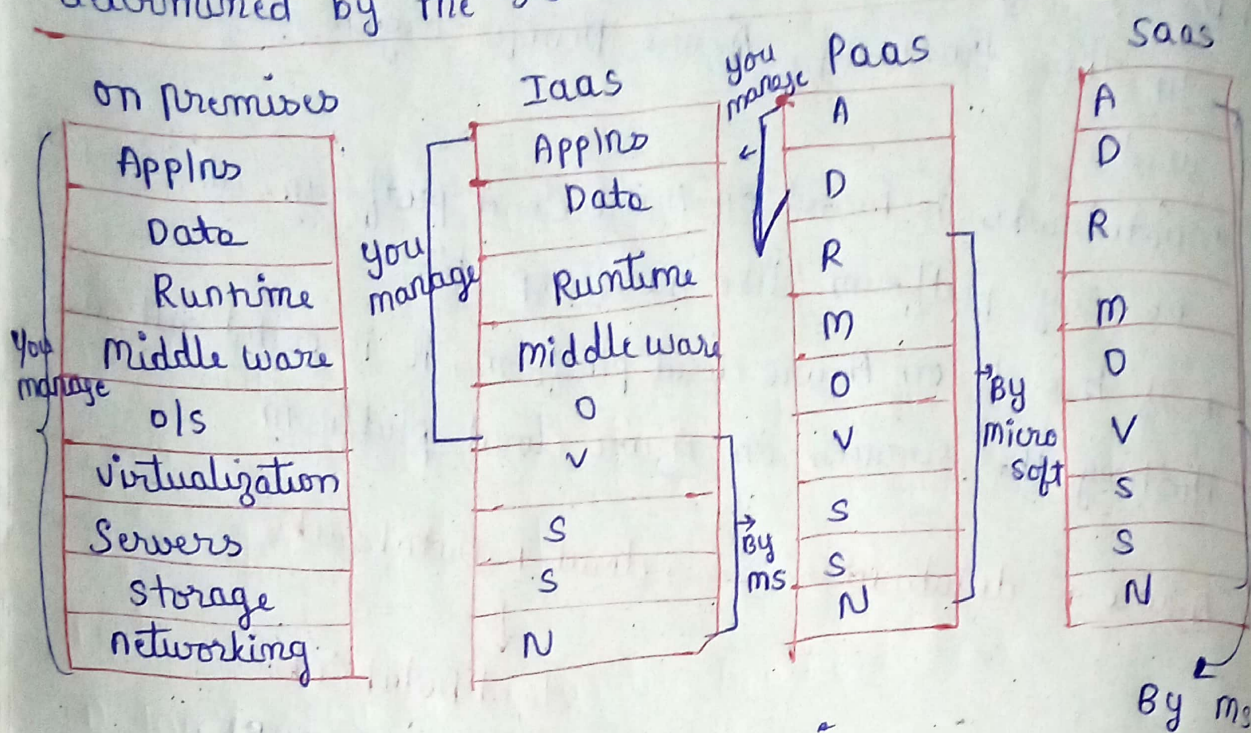 by the
on premises
Applns
Data
Runtime
Middle ware
O/S
virtualization
Servers
Storage
networking
You
manage
Iaas
Applns
Data
Runtime
middle ware
O
V
S
S
N
you
manage
By
ms
Paas
A
D
R
m
O
V
S
S
N
you
manage
By
micro
soft
Saas
A
D
R
m
O
V
S
S
N
By ms